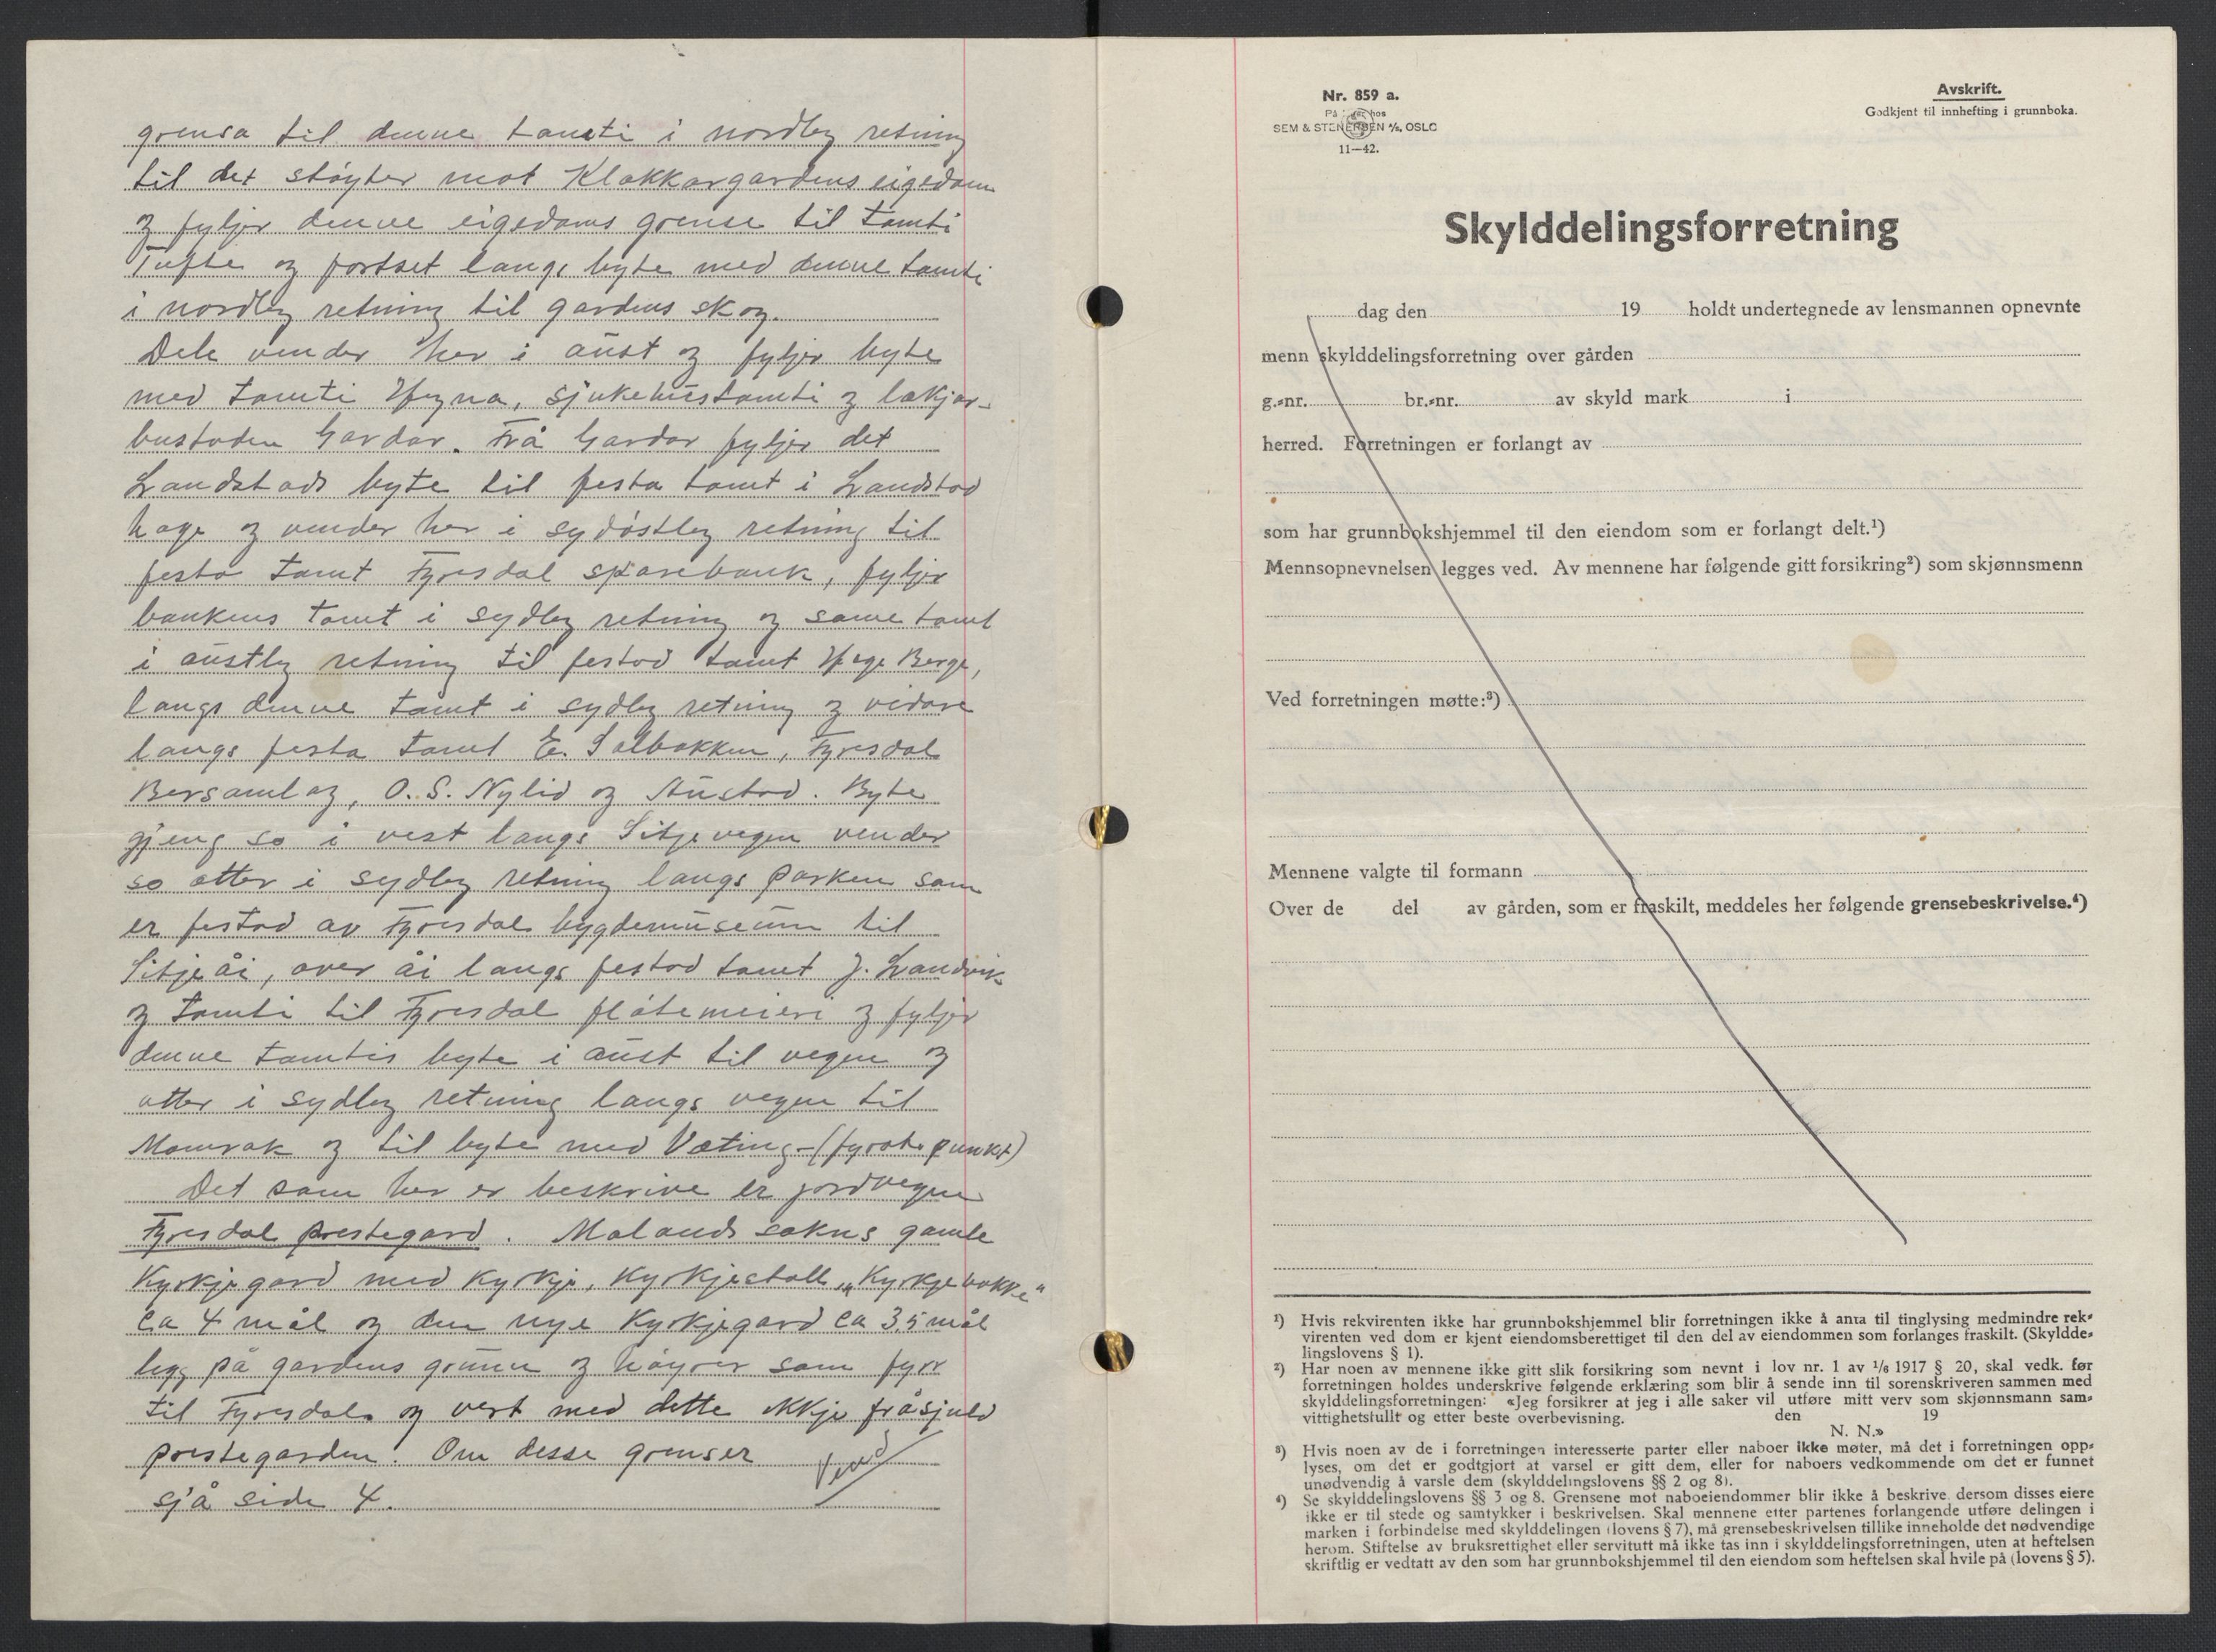 grensa til denne tomti i nordleg retning
til det støyter mot Klokkargardens eigedom
og fylgjer denne eigedoms grense til tomti
Tufte og fortset langs byte med denne tomti
i nordleg retning til gardens skog.
Dele vender her i aust og fylgjer byte
med tomti Hegna, sjukehustomti og lækjar-
bustaden Gardar. Frå Gardar fylgjer det
Landstads byte til festa tomt i Landstad
hage og vender her i sydøstleg retning til
festa tomt Fyresdal sparebank, fylgjer
bankens tomt i sydleg retning og same tomt
i austleg retning til festad tomt Hege Berge,
langs denne tomt i sydleg retning og vidare
langs festa tomt E. Solbakken, Fyresdal
Bersamlag, O. S. Nylid og Austad. Byte
gjeng so i vest langs Sitjevegen vender
so atter i sydleg retning langs parken som
er festad av Fyresdal bygdemuseum til
Sitjeåi, over åi langs festad tomt J. Landvik
og tomti til Fyresdal fløtemeieri og fylgjer
denne tomtis byte i aust til vegen og
atter i sydleg retning langs vegen til
Momrak og til byte med Veting - (fyrste punkt)
Det som her er beskrive er jordvegen
Fyresdal prestegard. Molands sokns gamle
Kyrkjegard med Kyrkje, Kyrkjestall, "Kyrkjebakke"
ca 4 mål og den nye Kyrkjegard ca 3,5 mål
ligg på gardens grunn og høyrer som fyrr
til Fyresdal og vert med dette ikkje fråsjuld
prestegarden. Om desse grenser
sjå side 4. Vend
Nr. 859 a.
På lager hos
SEM & STENERSEN A/S, OSLO
11—42.
Avskrift.
Godkjent til innhefting i grunnboka.
Skylddelingsforretning
dag den 19 holdt undertegnede av lensmannen opnevnte
menn skylddelingsforretning over gården
g.-nr. br.-nr. av skyld mark i
herred. Forretningen er forlangt av
som har grunnbokshjemmel til den eiendom som er forlangt delt.¹)
Mennsopnevnelsen legges ved. Av mennene har følgende gitt forsikring²) som skjønnsmenn
Ved forretningen møtte:³)
Mennene valgte til formann
Over de del av gården, som er fraskilt, meddeles her følgende grensebeskrivelse.⁴)
¹) Hvis rekvirenten ikke har grunnbokshjemmel blir forretningen ikke å anta til tinglysing medmindre rek-
virenten ved dom er kjent eiendomsberettiget til den del av eiendommen som forlanges fraskilt. (Skyldde-
lingslovens § 1).
²) Har noen av mennene ikke gitt slik forsikring som nevnt i lov nr. 1 av 1/6 1917 § 20, skal vedk. før
forretningen holdes underskrive følgende erklæring som blir å sende inn til sorenskriveren sammen med
skylddelingsforretningen: «Jeg forsikrer at jeg i alle saker vil utføre mitt verv som skjønnsmann sam-
vittighetsfullt og etter beste overbevisning. den 19
N. N.»
³) Hvis noen av de i forretningen interesserte parter eller naboer ikke møter, må det i forretningen opp-
lyses, om det er godtgjort at varsel er gitt dem, eller for naboers vedkommende om det er funnet
unødvendig å varsle dem (skylddelingslovens §§ 2 og 8).
⁴) Se skylddelingslovens §§ 3 og 8. Grensene mot naboeiendommer blir ikke å beskrive dersom disses eiere
ikke er til stede og samtykker i beskrivelsen. Skal mennene etter partenes forlangende utføre delingen i
marken i forbindelse med skylddelingen (lovens § 7), må grensebeskrivelsen tillike inneholde det nødvendige
herom. Stiftelse av bruksrettighet eller servitutt må ikke tas inn i skylddelingsforretningen, uten at heftelsen
skriftlig er vedtatt av den som har grunnbokshjemmel til den eiendom som heftelsen skal hvile på (lovens § 5).